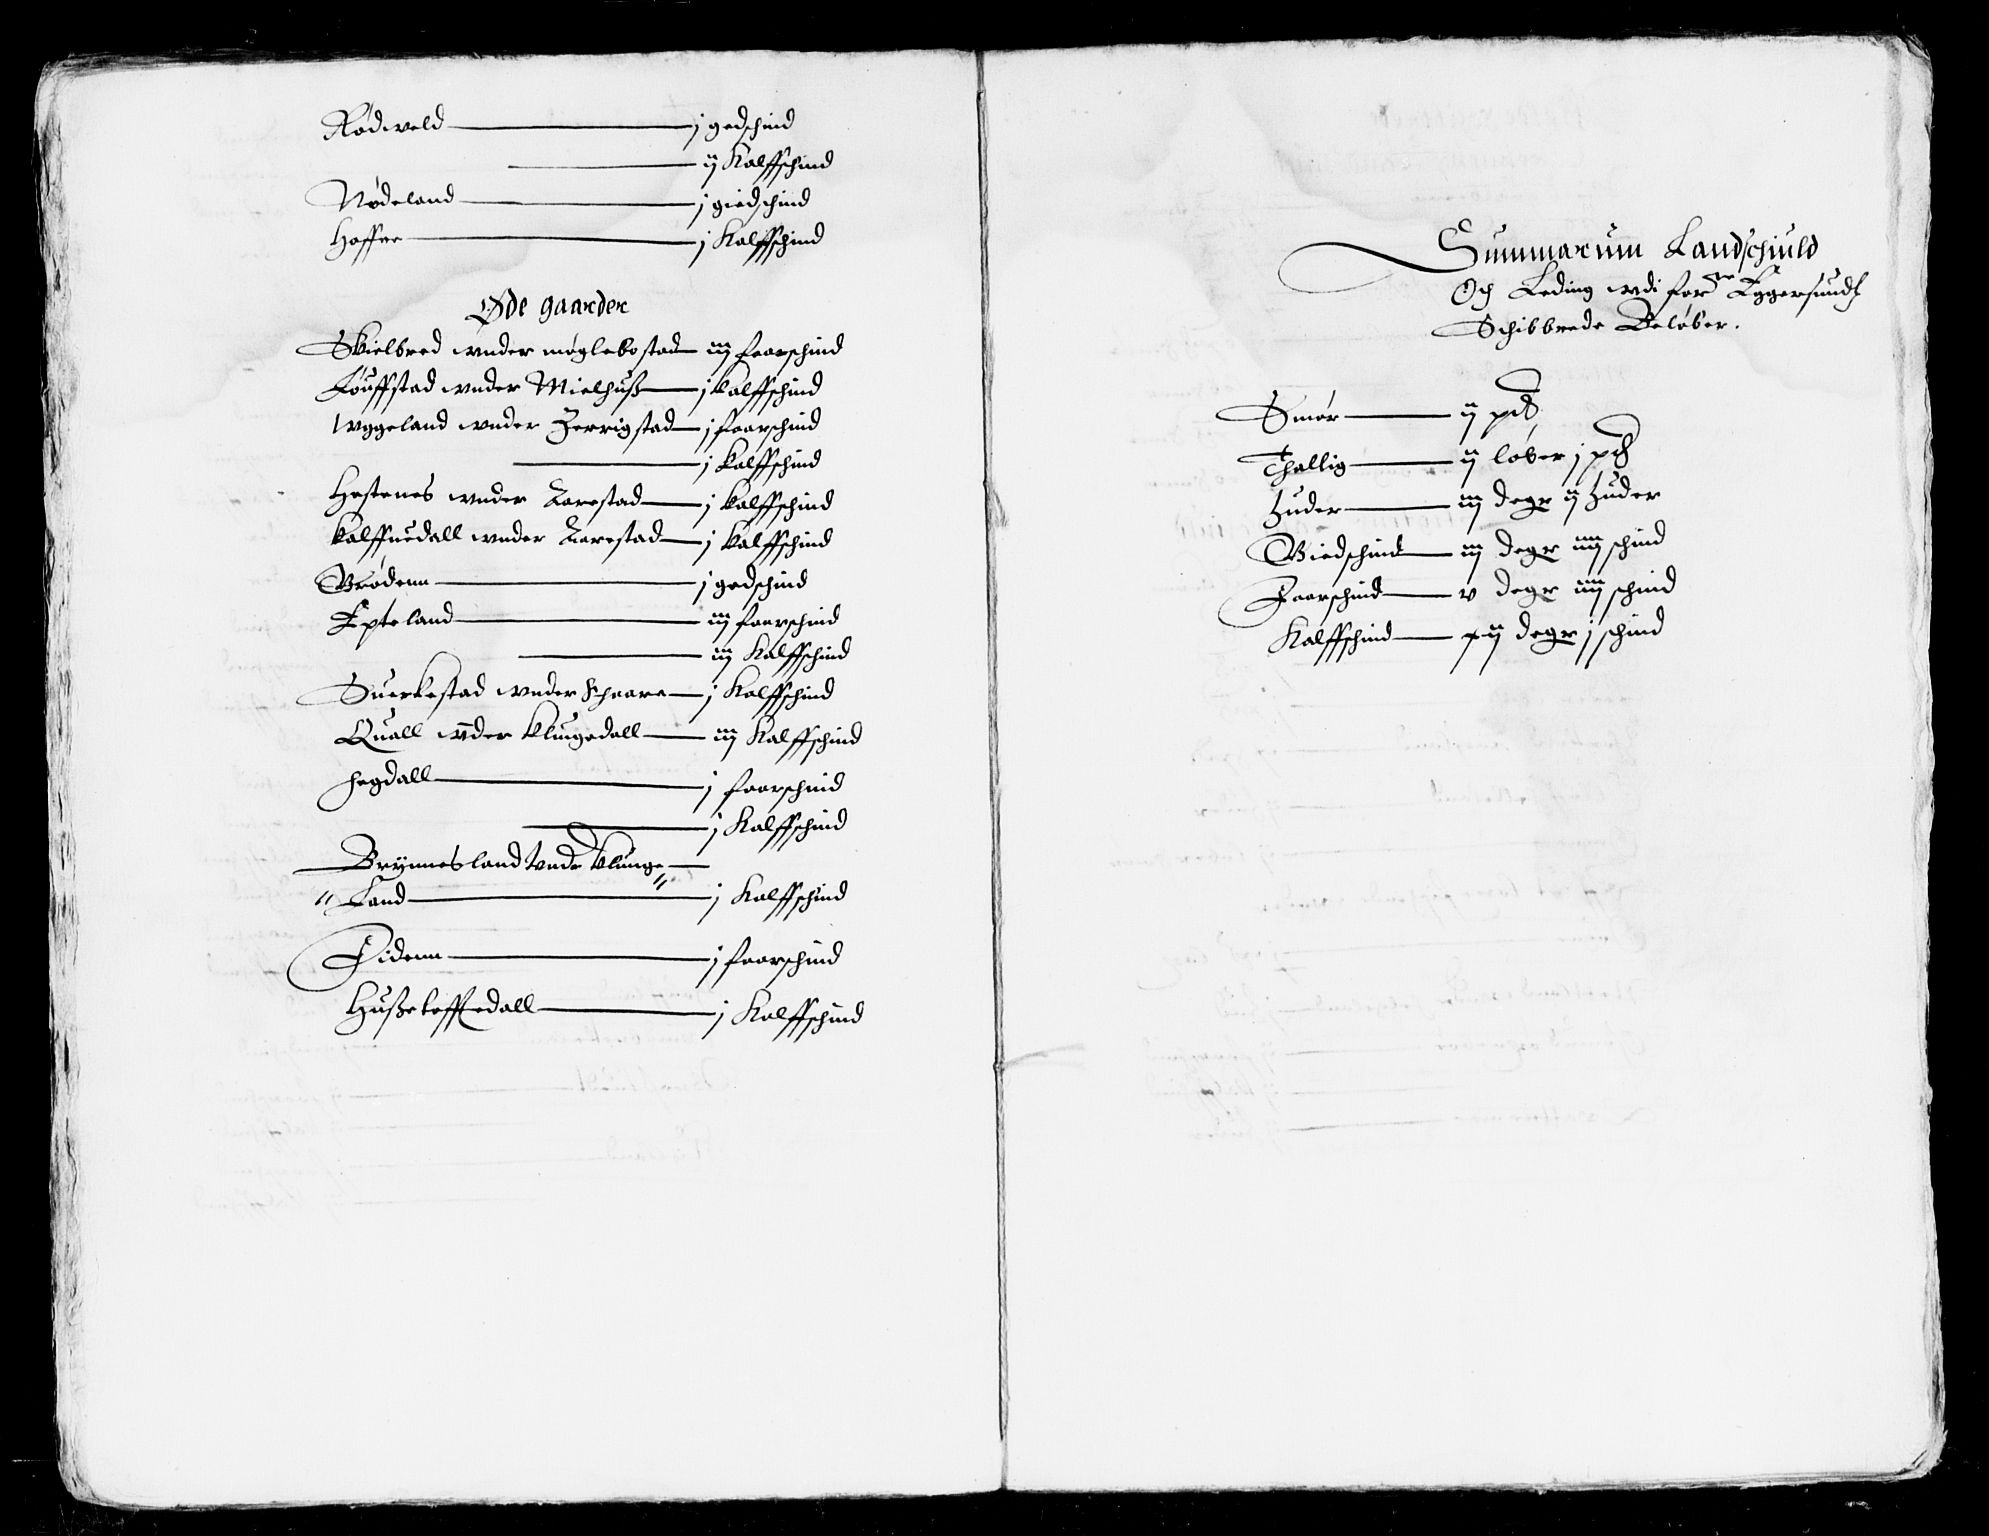 Rødweld — j gedschind
— ij Kalffschind
Nødeland — j giedschind
Haffue — j Kalffschind
Øde gaarder
Skielbred wnder møglebostad — iij faarschind
Louffstad wnder Mielhuß — j kalffschind
Wggeland wnder Zerrigstad — j faarschind
— j kalffschind
Hestenes wnder Aarestad — j kalffschind
kalffuedall wnder Aarestad — j kalffschind
Brødenn — j gedschind
Epteland — iij faarschind
— iij Kalffschind
Suerkestad wnder Schaara — j Kalffschind
Quall wnder klungedall — iij Kalffschind
hegdall — j faarschind
— j Kalffschind
Brynnesland Vnder klunge
Land — j Kalffschind
Eidenn — j faarschind
Hußetofftedall — j Kalffschind
Summarum Landschiuld
Och Leding wdi forne Eggersundz
Schibbrede Beløber.
Smør — ij pd
Thallig — ij løber j pd
huder — iij degr ij huder
Giedschind — iij degr iiij schind
Faarschind — v degr iiij schind
Kalffschind — xij degr j schind